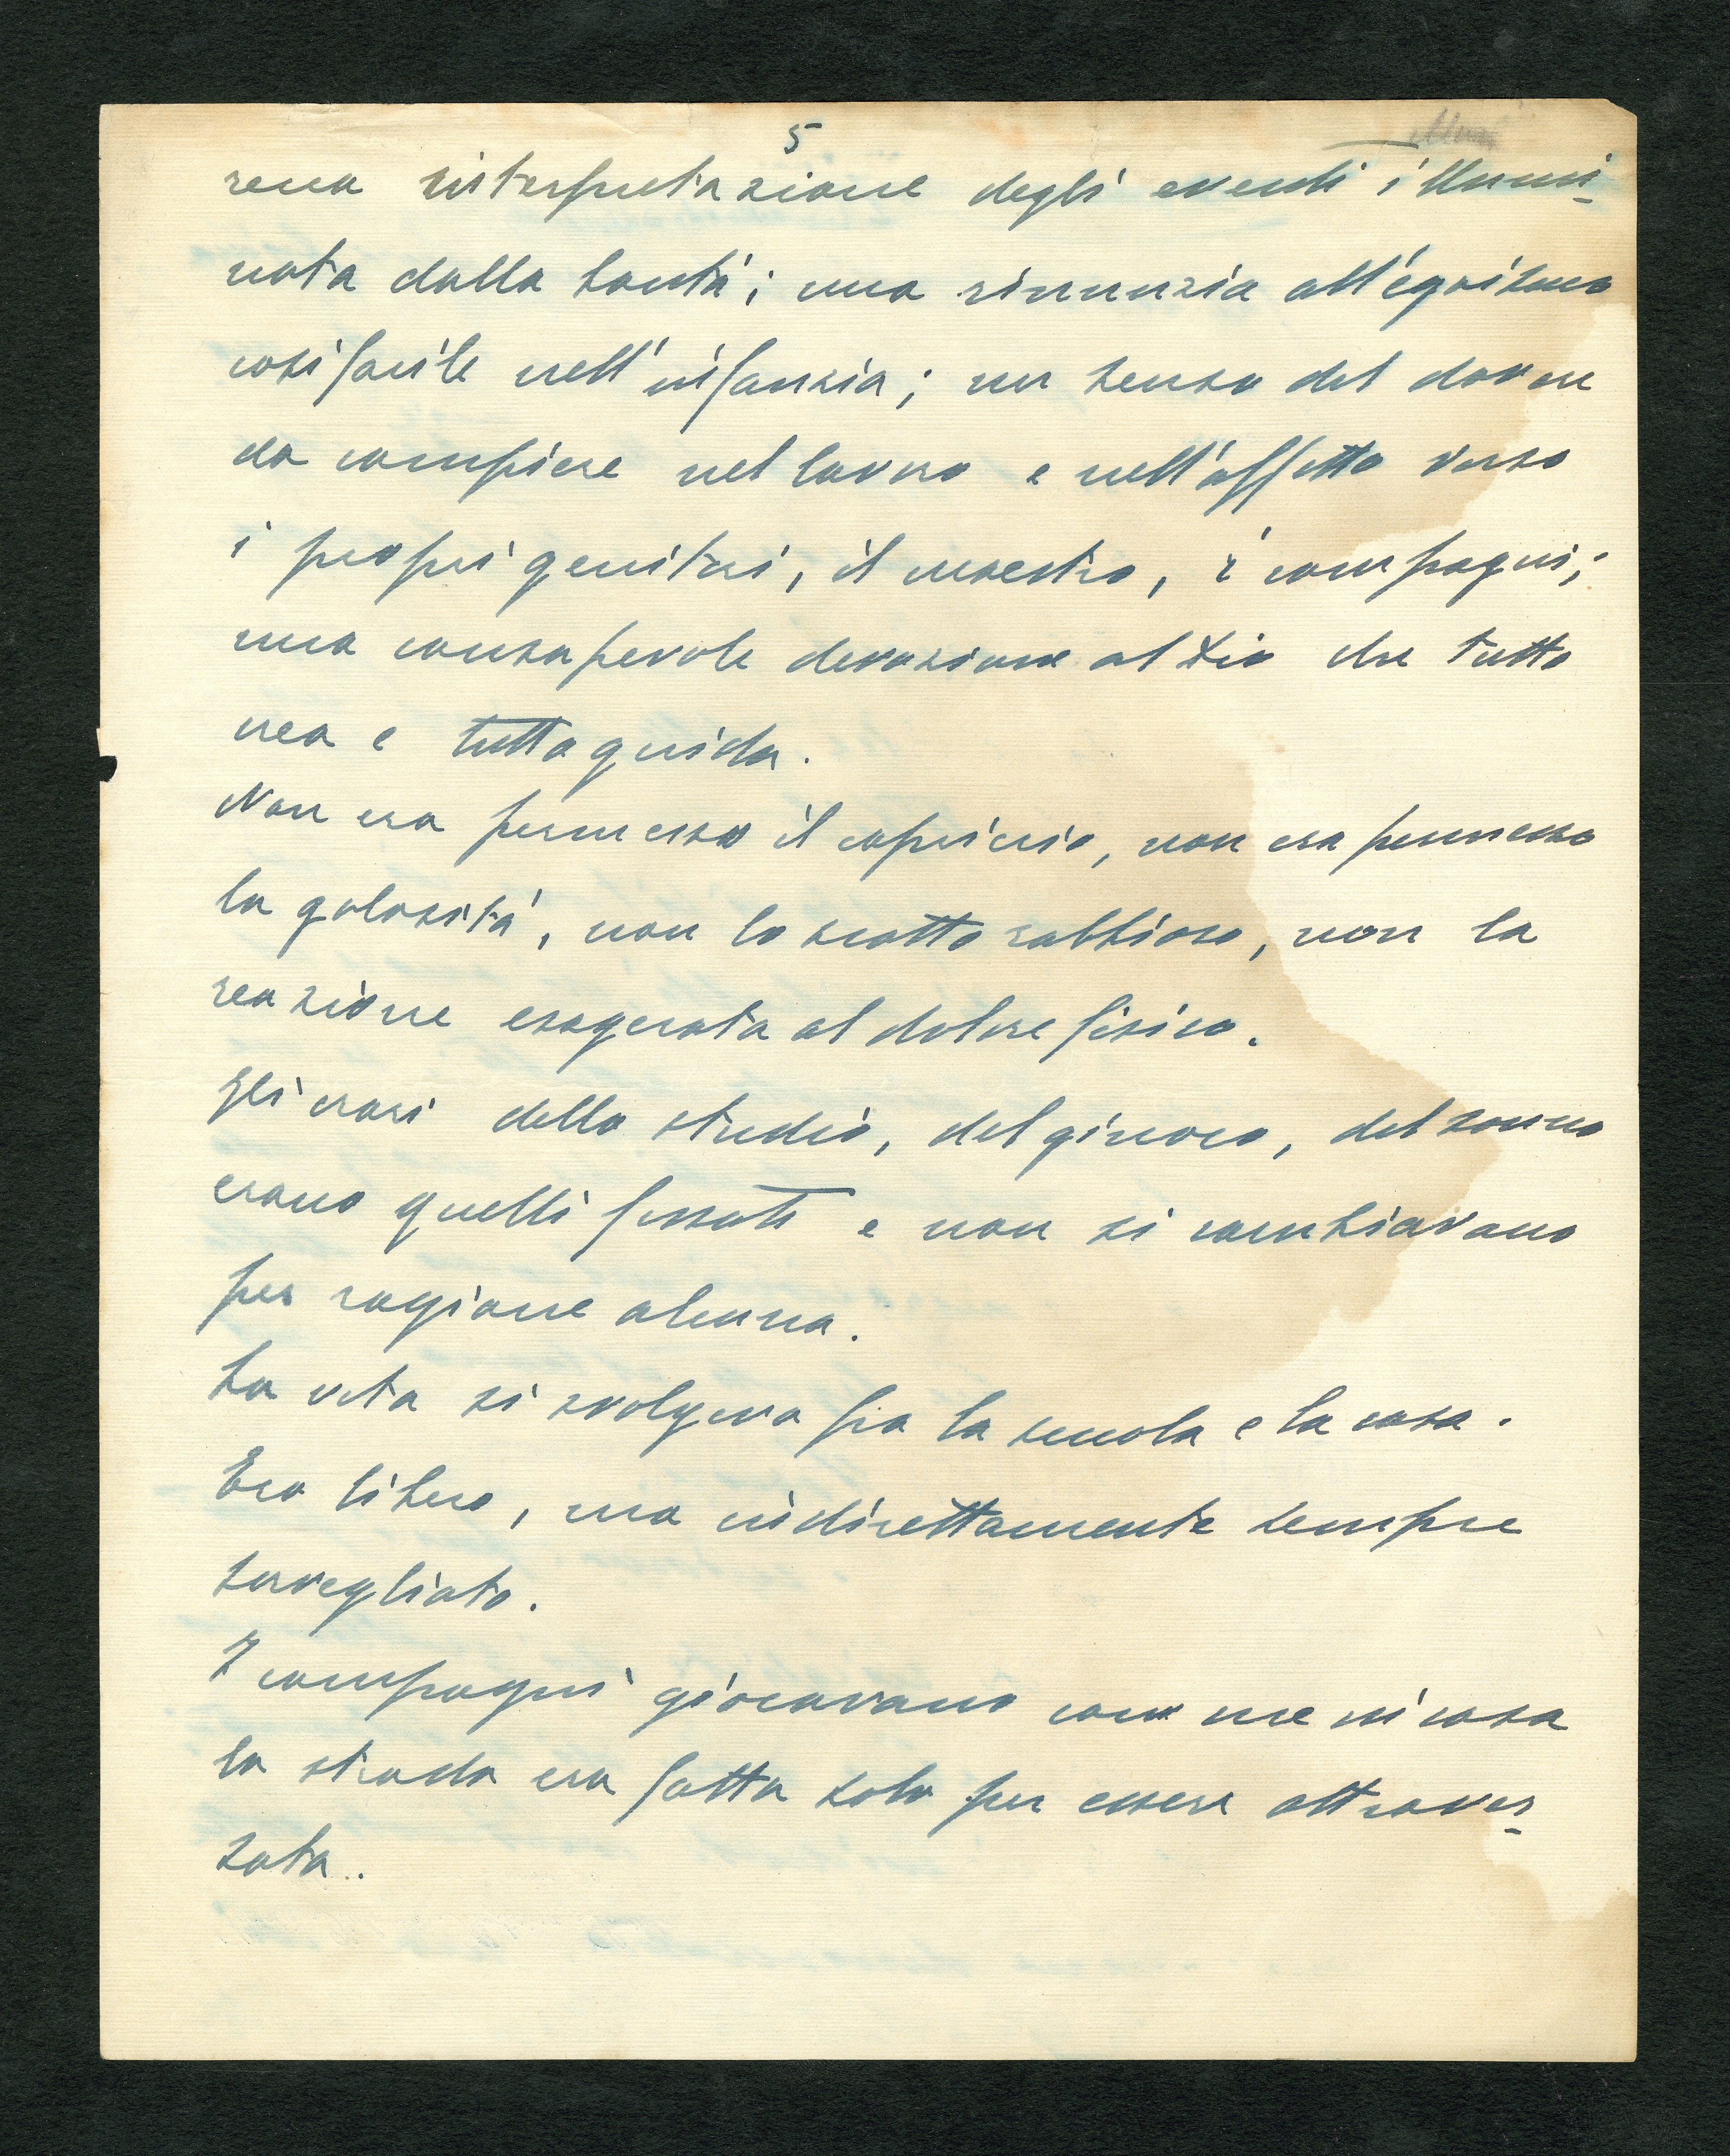 5
rena interpretazione degli eventi illumi-
nata dalla bontà; una rinunzia all'egoismo
così facile nell'infanzia; un senso del dovere
da compiere nel lavoro e nell'affetto verso
i propri genitori, il maestro, i compagni;
una consapevole devozione al Dio che tutto
crea e tutto guida.
Non era permesso il capriccio, non era permessa
la golosità, non lo scatto rabbioso, non la
reazione esagerata al dolore fisico.
Gli orari dello studio, del giuoco, del sonno
erano quelli fissati e non si cambiavano
per ragione alcuna.
La vita si svolgeva fra la scuola e la casa.
Ero libero, ma indirettamente sempre
sorvegliato.
I compagni giocavano con me in casa
la strada era fatta solo per essere attraver-
sata.